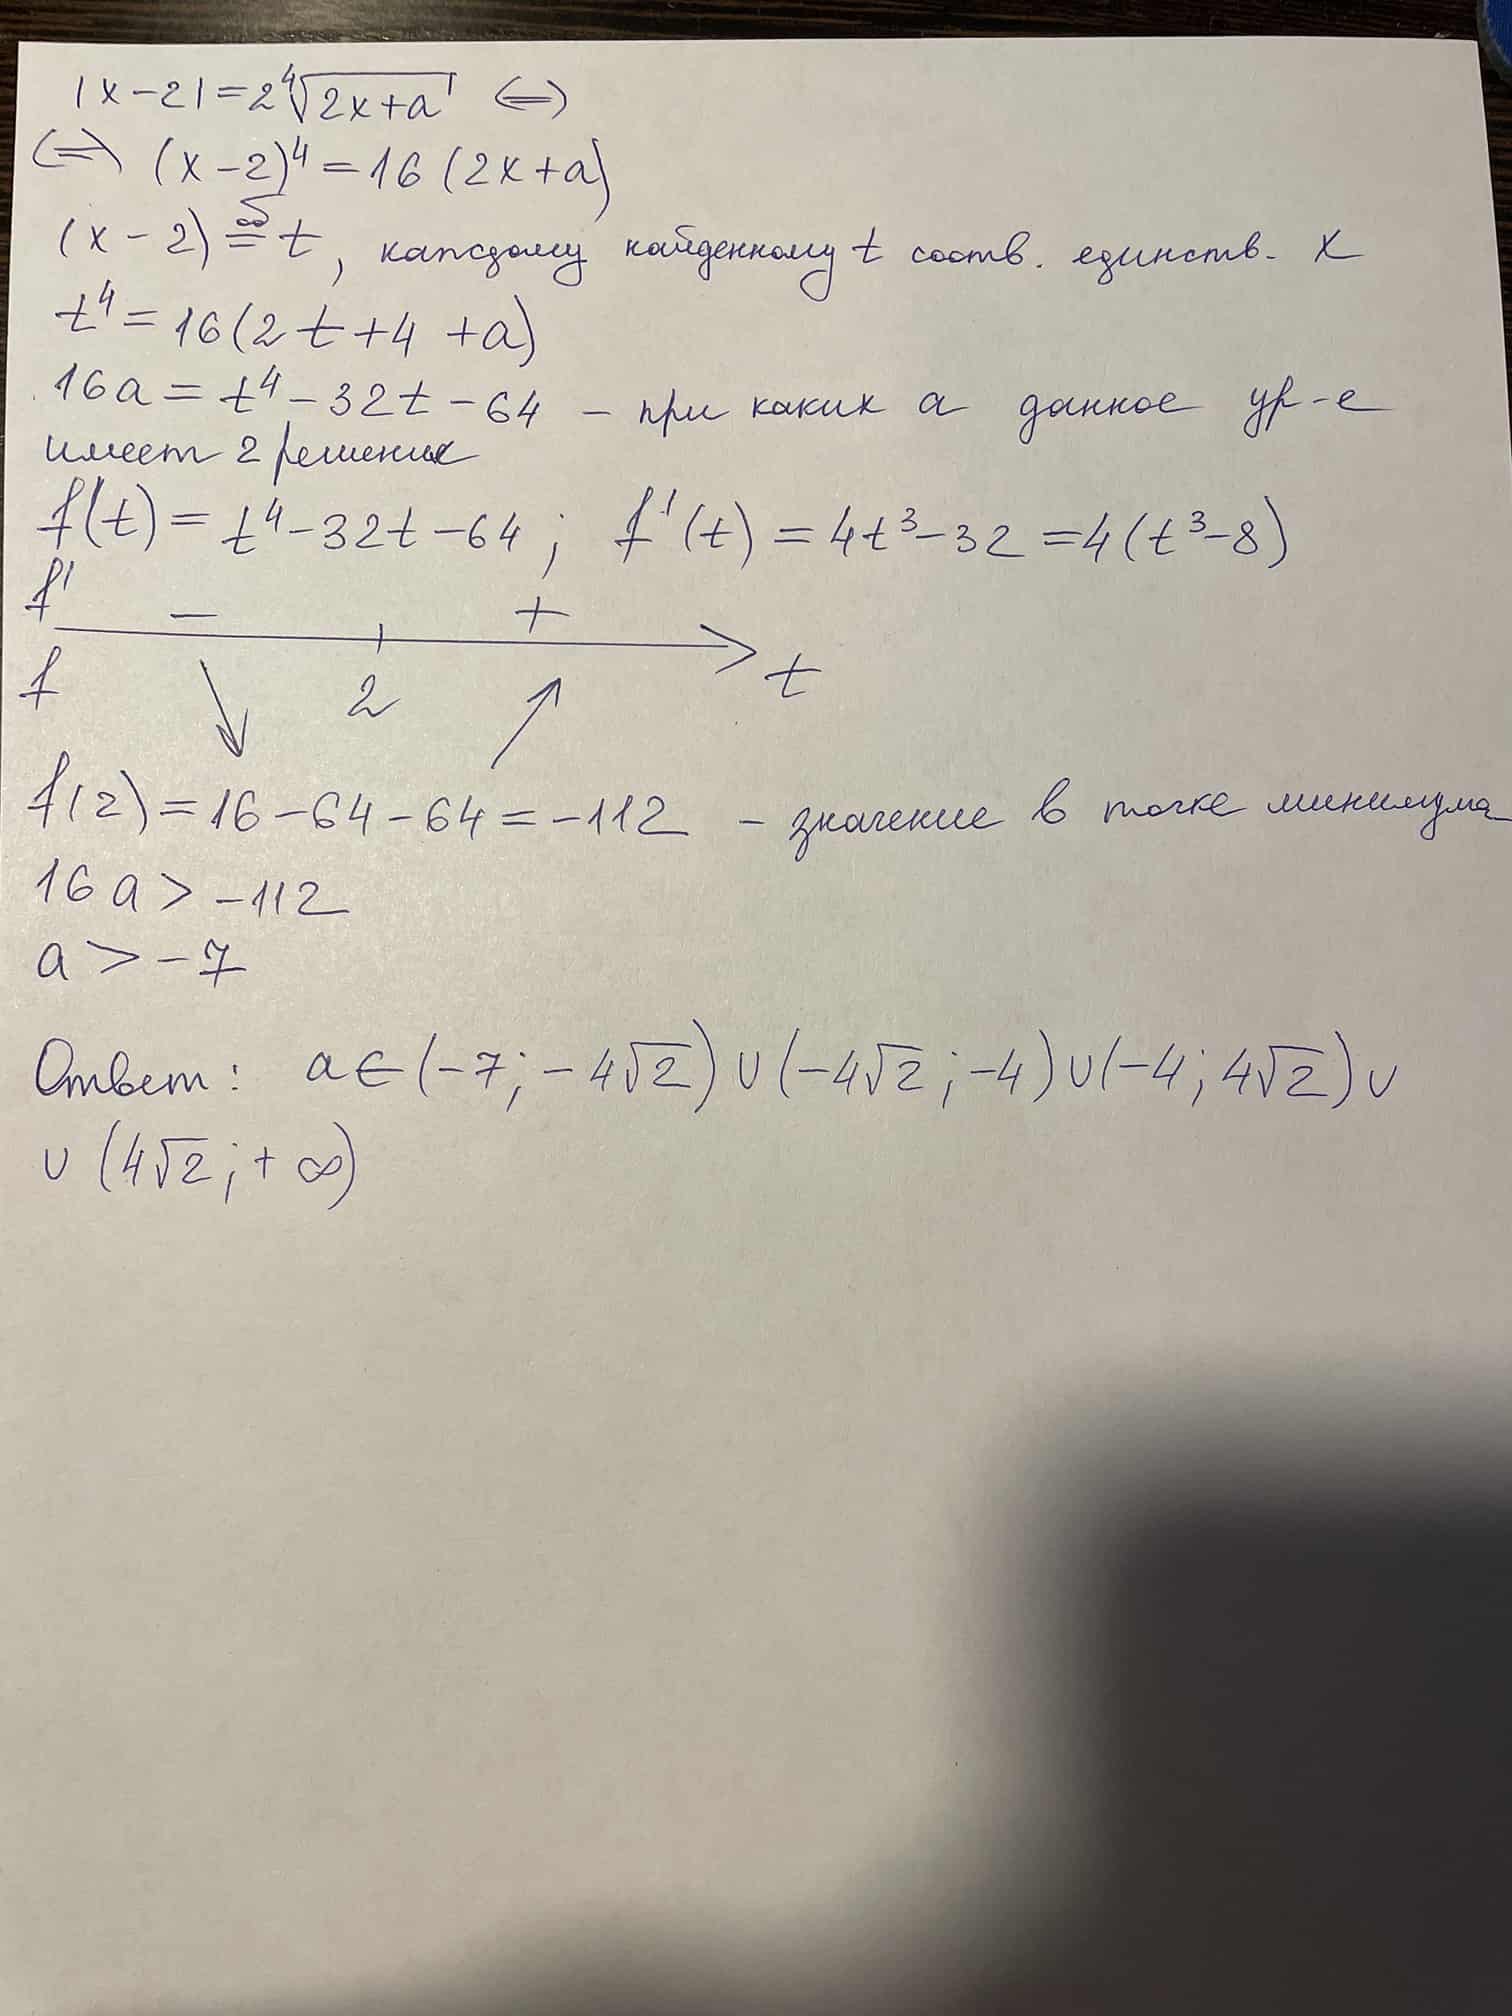 |x-2|=2∜(2x+a) <=>
<=> (x-2)⁴=16(2x+a)
(x-2) = t, каждому найденному t соотв. единств. x
t⁴=16(2t+4+a)
16a=t⁴-32t-64 - при каких a данное ур-е
имеет 2 решения
f(t)=t⁴-32t-64; f'(t)=4t³-32=4(t³-8)
f' - +
f 2 t
f(2)=16-64-64=-112 - значение в точке минимума
16a>-112
a>-7
Ответ: a∈(-7;-4√2)∪(-4√2;-4)∪(-4;4√2)∪
∪(4√2;+∞)